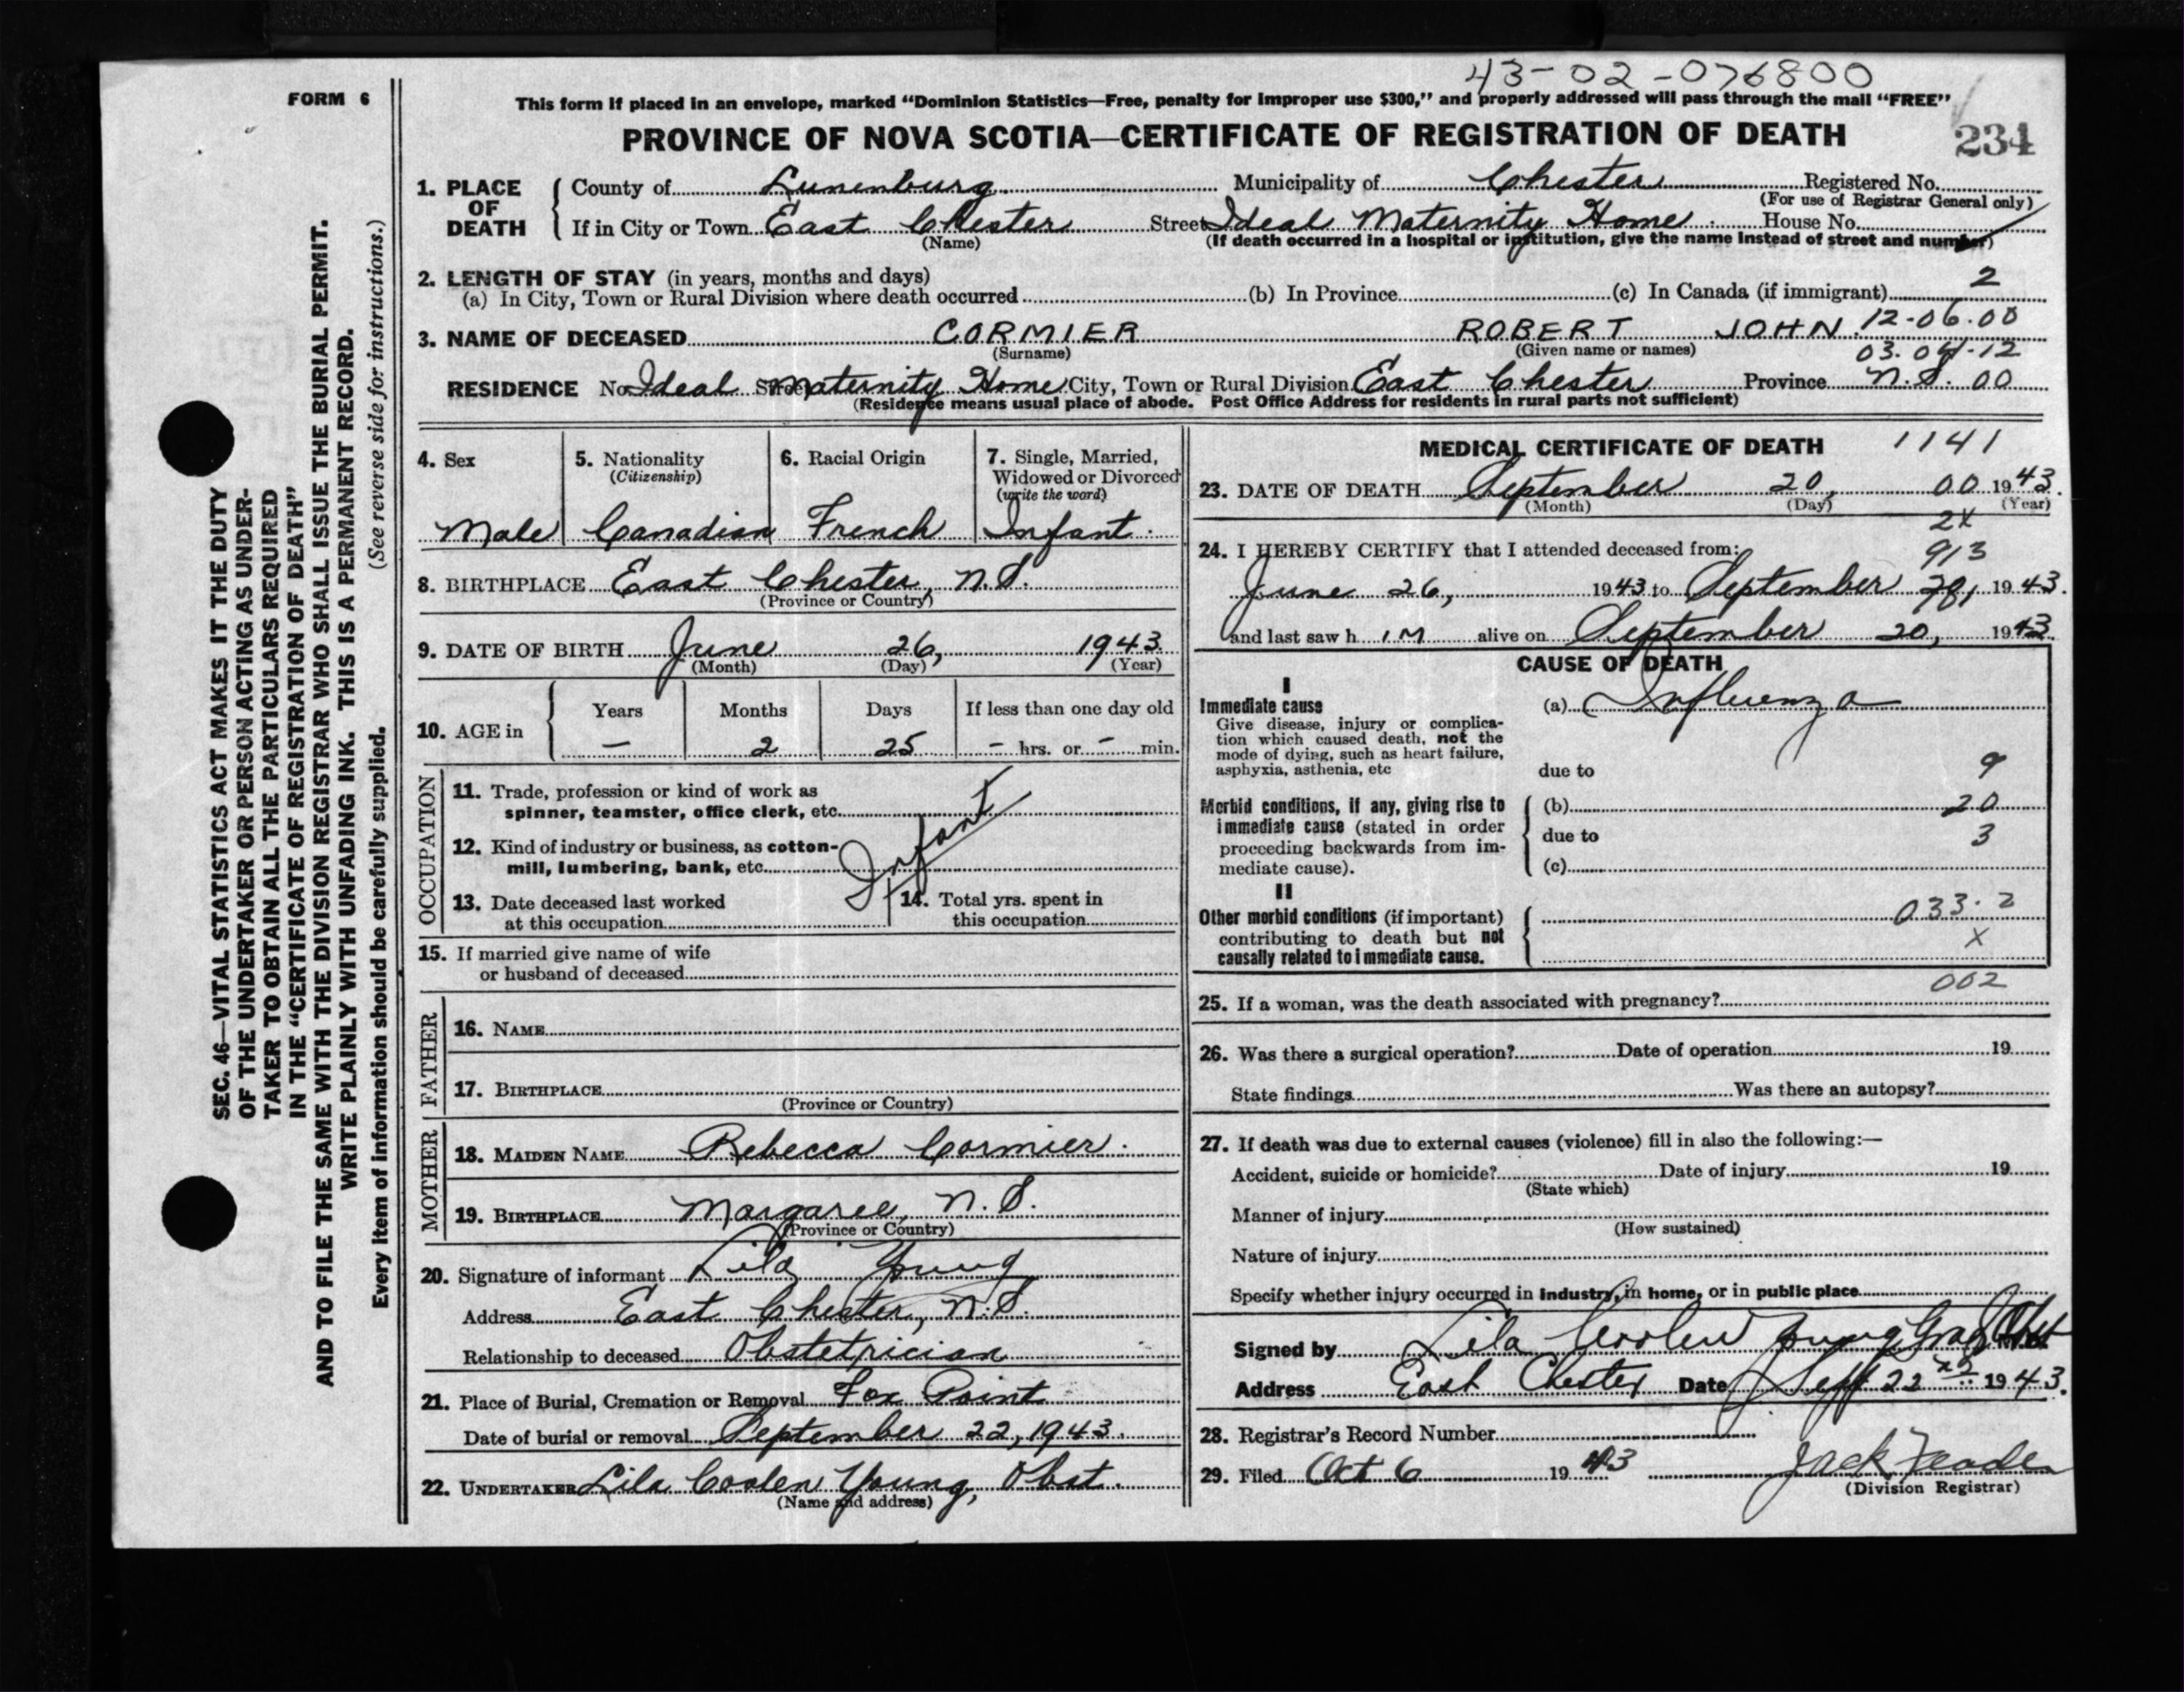 43-02-076800
FORM 6
This form if placed in an envelope, marked "Dominion Statistics—Free, penalty for improper use $300," and properly addressed will pass through the mail "FREE"
PROVINCE OF NOVA SCOTIA—CERTIFICATE OF REGISTRATION OF DEATH
234
1. PLACE OF DEATH
County of Lunenburg Municipality of Chester Registered No.
(For use of Registrar General only)
If in City or Town East Chester Street Ideal Maternity Home House No.
(Name) (If death occurred in a hospital or institution, give the name instead of street and number)
2. LENGTH OF STAY (in years, months and days) 2
(a) In City, Town or Rural Division where death occurred (b) In Province (c) In Canada (if immigrant)
3. NAME OF DECEASED CORMIER ROBERT JOHN 12-06-00
(Surname) (Given name or names) 03.04-12
RESIDENCE No Ideal Street Maternity Home City, Town or Rural Division East Chester Province N.S. 00
(Residence means usual place of abode. Post Office Address for residents in rural parts not sufficient)
4. Sex
Male
5. Nationality
(Citizenship)
Canadian
6. Racial Origin
French
7. Single, Married, Widowed or Divorced
(write the word)
Infant
8. BIRTHPLACE East Chester, N.S.
(Province or Country)
9. DATE OF BIRTH June 26, 1943
(Month) (Day) (Year)
10. AGE in
Years Months Days If less than one day old
— 2 25 - hrs. or - min.
OCCUPATION
11. Trade, profession or kind of work as
spinner, teamster, office clerk, etc.
12. Kind of industry or business, as cotton-
mill, lumbering, bank, etc.
Infant
13. Date deceased last worked
at this occupation
14. Total yrs. spent in
this occupation
15. If married give name of wife
or husband of deceased
FATHER
16. NAME
17. BIRTHPLACE
(Province or Country)
MOTHER
18. MAIDEN NAME Rebecca Cormier.
19. BIRTHPLACE Margaree, N.S.
(Province or Country)
20. Signature of informant Lila Young
Address East Chester, N.S.
Relationship to deceased Obstetrician
21. Place of Burial, Cremation or Removal Fox Point
Date of burial or removal September 22, 1943.
22. UNDERTAKER Lila Coolen Young, Obst.
(Name and address)
MEDICAL CERTIFICATE OF DEATH 1141
23. DATE OF DEATH September 20, 00 1943.
(Month) (Day) (Year)
2X
24. I HEREBY CERTIFY that I attended deceased from: 913
June 26, 1943 to September 20, 1943.
and last saw h im alive on September 20, 1943
CAUSE OF DEATH
I
Immediate cause
Give disease, injury or complica-
tion which caused death, not the
mode of dying, such as heart failure,
asphyxia, asthenia, etc
(a) Influenza
due to 9
Morbid conditions, if any, giving rise to
immediate cause (stated in order
proceeding backwards from im-
mediate cause).
(b) 20
due to 3
(c)
II
Other morbid conditions (if important)
contributing to death but not
causally related to immediate cause.
033.2
X
002
25. If a woman, was the death associated with pregnancy?
26. Was there a surgical operation? Date of operation 19
State findings Was there an autopsy?
27. If death was due to external causes (violence) fill in also the following:—
Accident, suicide or homicide? Date of injury 19
(State which)
Manner of injury
(How sustained)
Nature of injury
Specify whether injury occurred in industry, in home, or in public place
Signed by Lila Coolen Young
Address East Chester Date Sept 22nd 1943.
28. Registrar's Record Number
29. Filed Oct 6 1943 Jack
(Division Registrar)
SEC. 46—VITAL STATISTICS ACT MAKES IT THE DUTY
OF THE UNDERTAKER OR PERSON ACTING AS UNDER-
TAKER TO OBTAIN ALL THE PARTICULARS REQUIRED
IN THE "CERTIFICATE OF REGISTRATION OF DEATH"
AND TO FILE THE SAME WITH THE DIVISION REGISTRAR WHO SHALL ISSUE THE BURIAL PERMIT.
WRITE PLAINLY WITH UNFADING INK. THIS IS A PERMANENT RECORD.
(See reverse side for instructions.)
Every item of information should be carefully supplied.